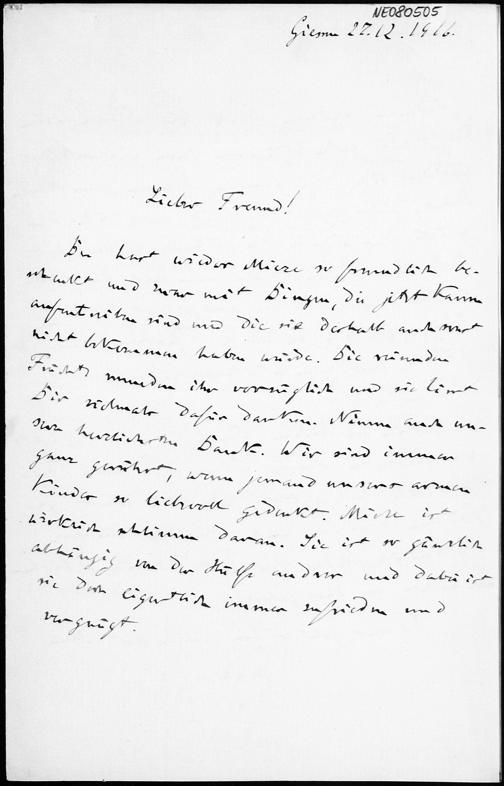 NE080505
Giessen 27.12.1916.
Lieber Freund!
Du hast wieder Mieze so freundlich be-
schenkt und zwar mit Dingen, die jetzt kaum
aufzutreiben sind und die sie deshalb auch sonst
nicht bekommen haben würde. Die
Früchte munden ihr vorzüglich und sie lässt
Dir vielmals dafür danken. Nimm auch un-
sern herzlichsten Dank. Wir sind immer
ganz gerührt, wenn jemand unseres armen
Kindes so liebevoll gedenkt. Mieze ist
wirklich schlimm daran. Sie ist so gänzlich
abhängig von der Hülfe andrer und dabei ist
sie doch eigentlich immer zufrieden und
vergnügt.